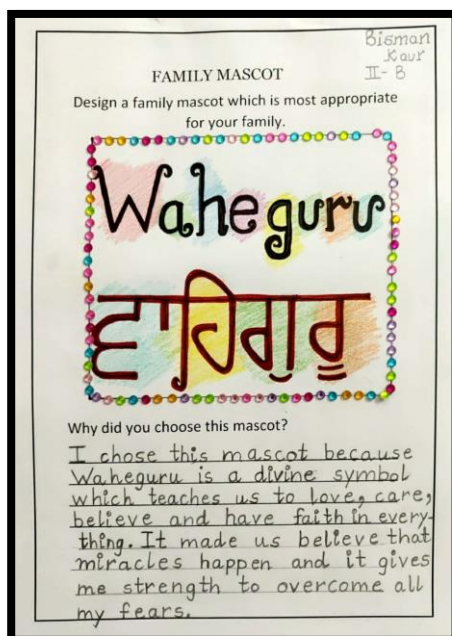 Bisman
Kaur
II-B
FAMILY MASCOT
Design a family mascot which is most appropriate
for your family.
Waheguru
ਵਾਹਿਗੁਰੂ
Why did you choose this mascot?
I chose this mascot because
Waheguru is a divine symbol
which teaches us to love, care,
believe and have faith in every-
thing. It made us believe that
miracles happen and it gives
me strength to overcome all
my fears.